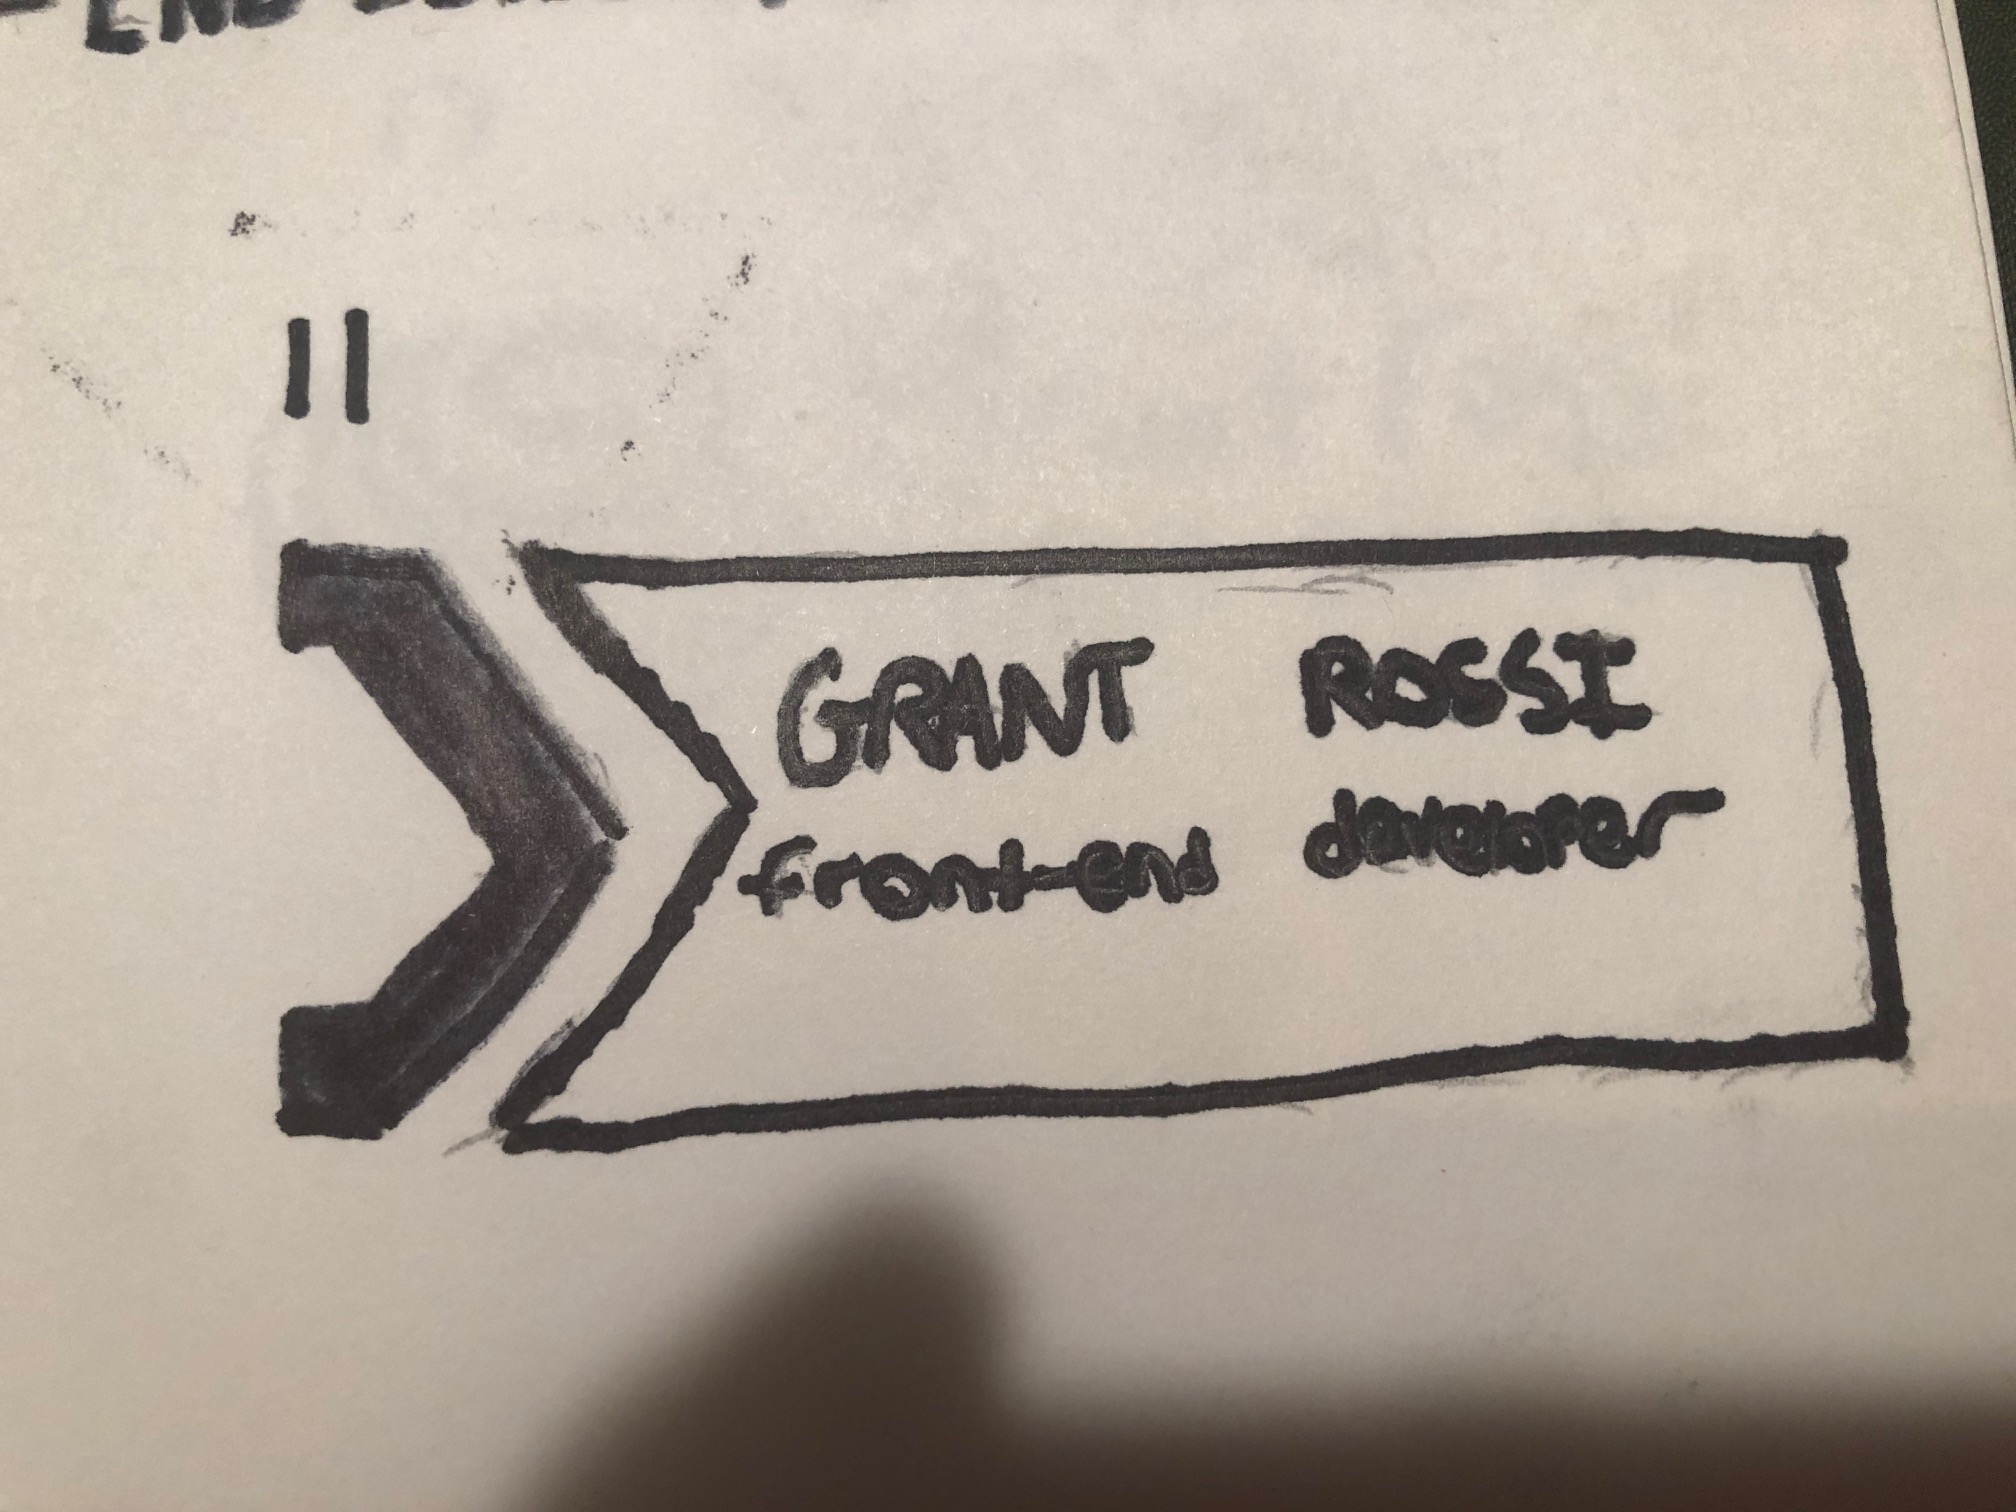 =
GRANT ROSSI
front-end developer